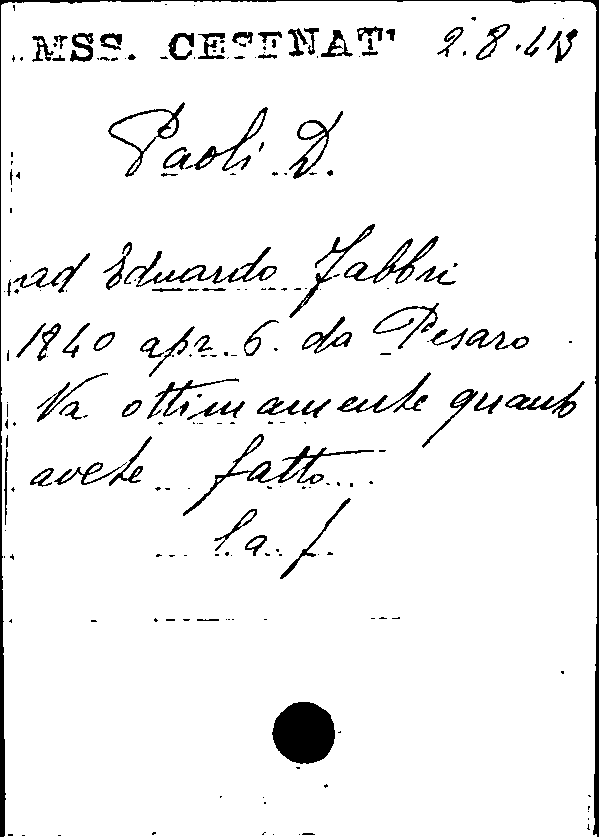 MSS. CESENAT' 2.8.413
Paoli D.
ad Eduardo Fabbri
1840 apr. 6. da Pesaro
Va ottimamente quanto
avete fatto...
l. a. f.